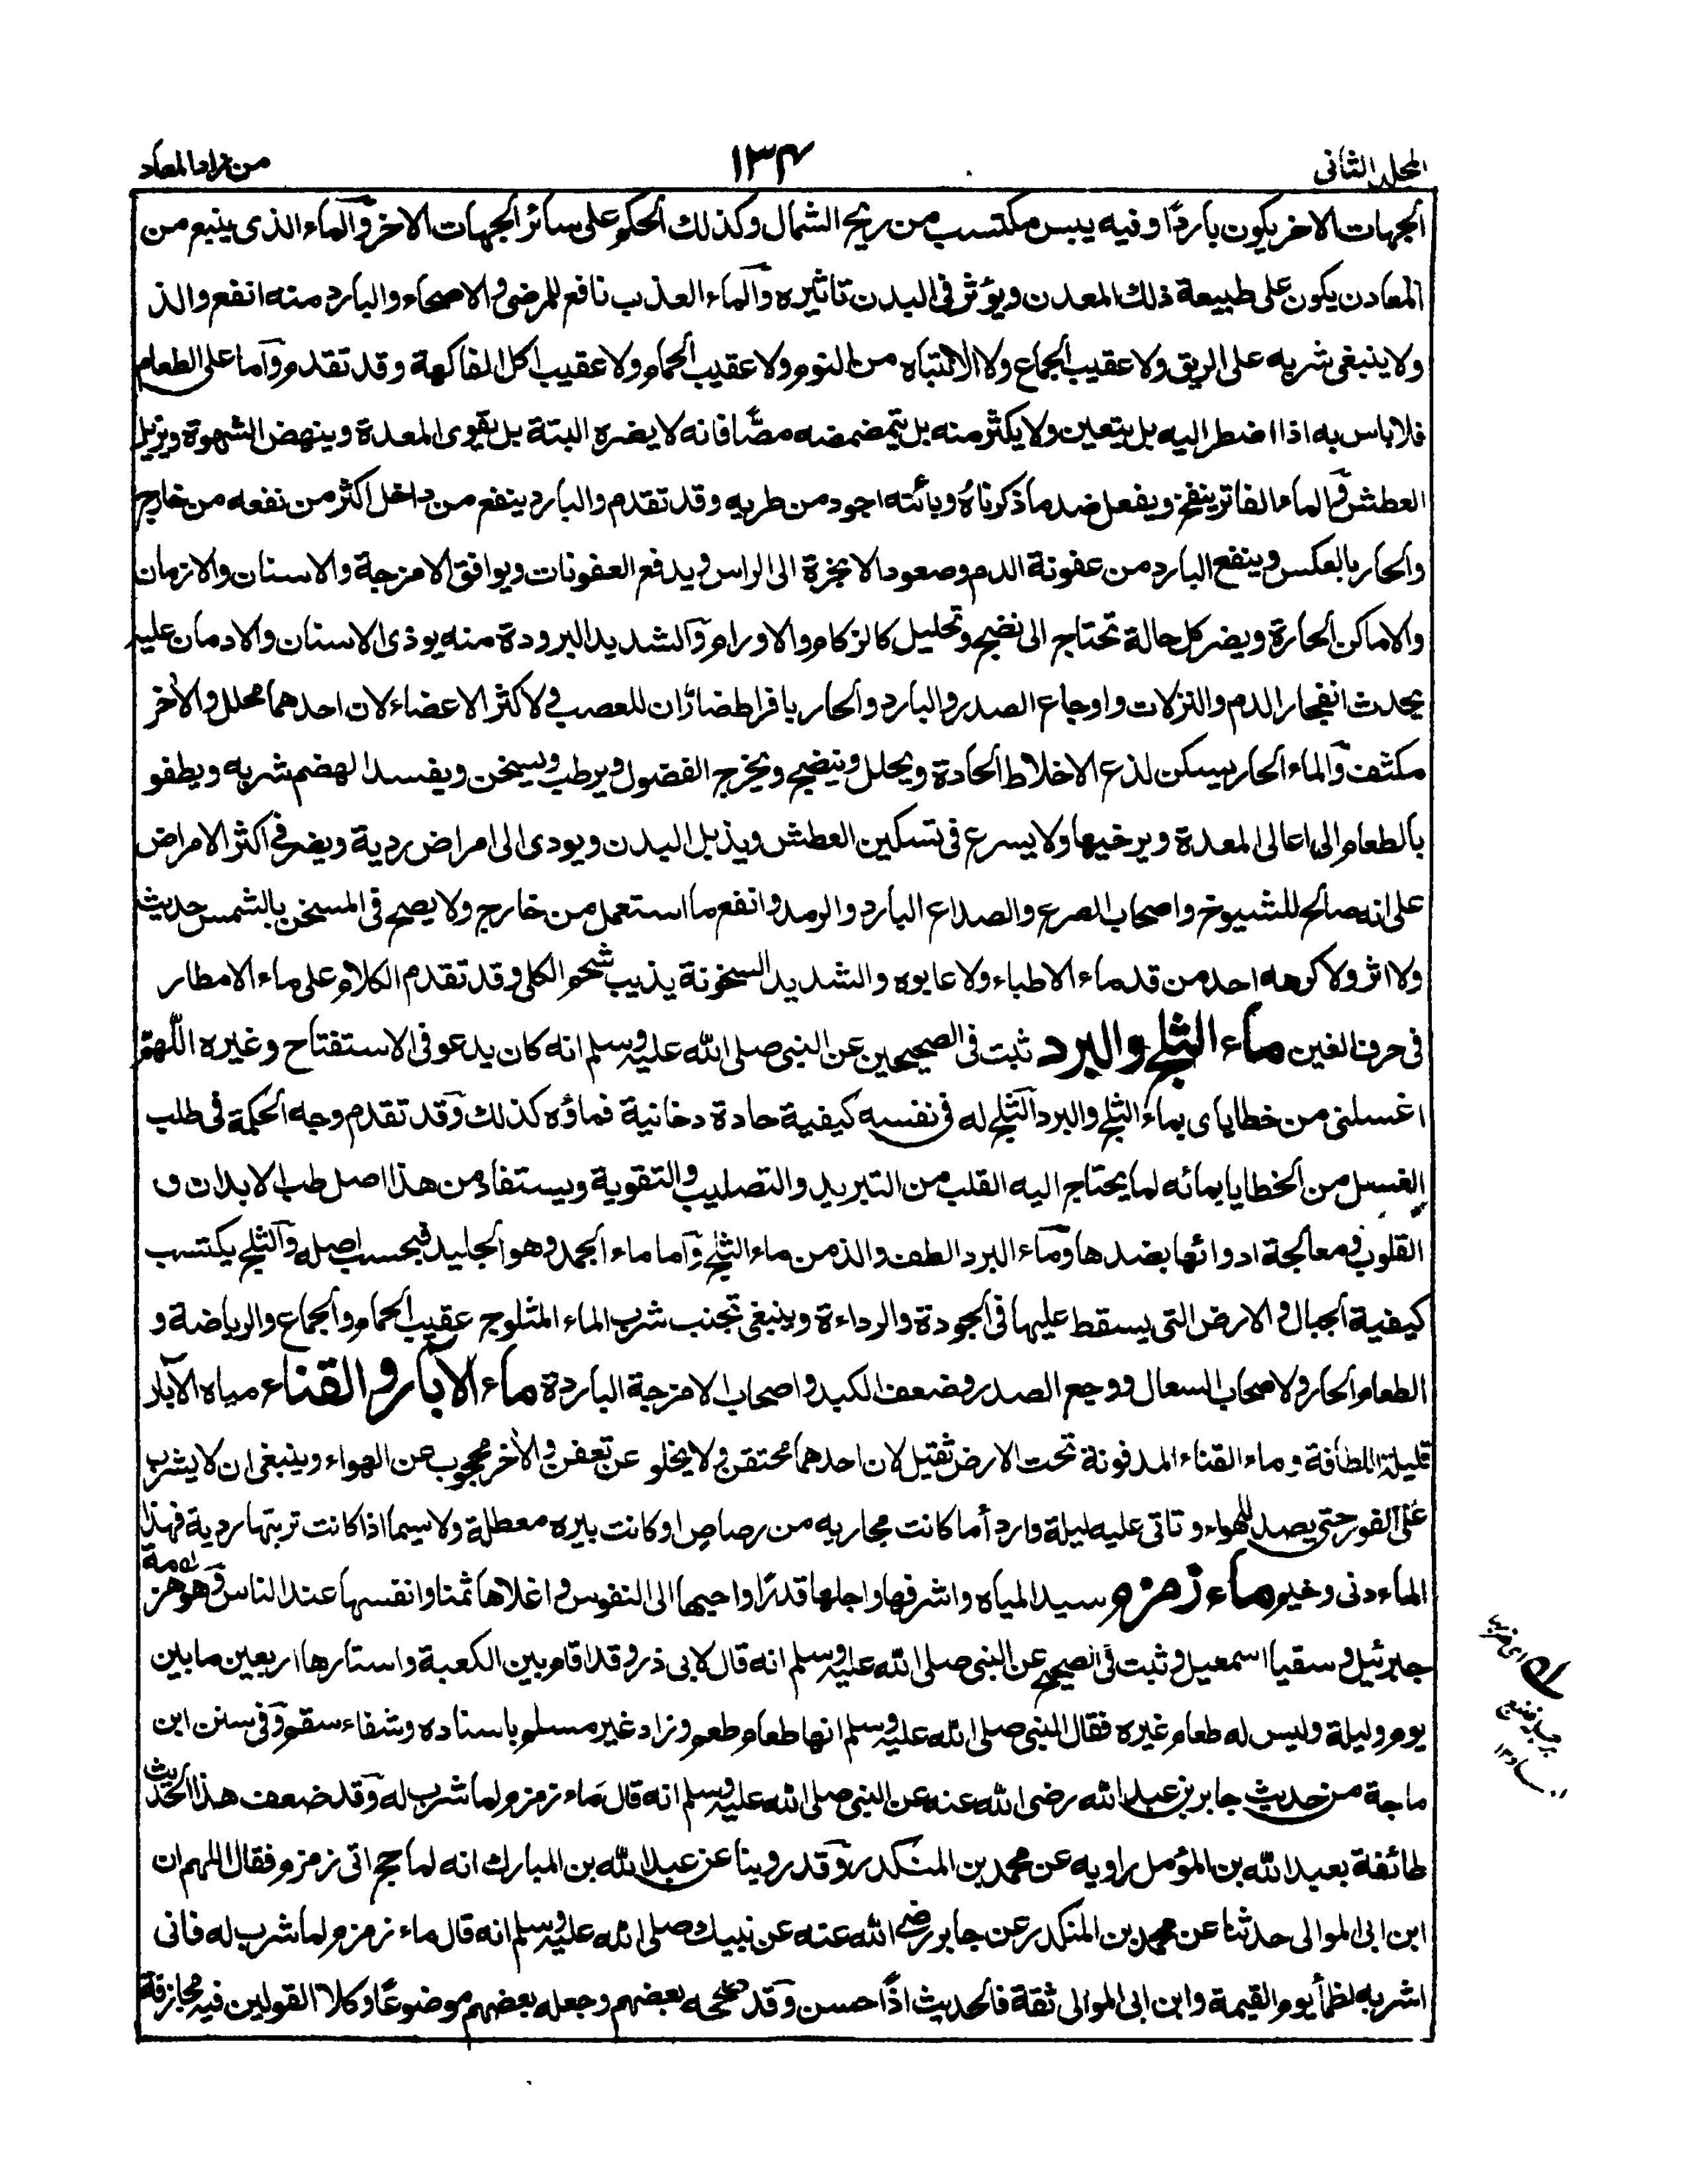 المجلد الثانى
١٣٤
من زاد المعاد
الجهات الاخر يكون باردًا وفيه يبس مكتسب من ريح الشمال وكذلك الحكم على سائر الجهات الاخر والماء الذى ينبع من
المعادن يكون على طبيعة ذلك المعدن ويؤثر فى البدن تاثيره والماء العذب نافع للمرضى والاصحاء والبارد منه انفع والذ
ولا ينبغى شربه على الريق ولا عقيب الجماع ولا الانتباه من النوم ولا عقيب الحمام ولا عقيب اكل الفاكهة وقد تقدم واما على الطعام
فلا باس به اذا اضطر اليه بل يتعين ولا يكثر منه بل يتمضمضه مصًّا فانه لا يضره البتة بل يقوى المعدة وينهض الشهوة ويزيل
العطش والماء الفاتر ينفخ ويفعل ضد ما ذكرناه وبائته اجود من طريه وقد تقدم والبارد ينفع من داخل اكثر من نفعه من خارج
والحار بالعكس وينفع البارد من عفونة الدم وصعود الابخرة الى الراس ويدفع العفونات ويوافق الامزجة والاسنان والازمان
والاماكن الحارة ويضر كل حالة تحتاج الى نضج وتحليل كالزكام والاورام والشديد البرودة منه يوذى الاسنان والادمان عليه
يحدث انفجار الدم والنزلات واوجاع الصدر والبارد والحار بافراط ضارّان للعصب ولاكثر الاعضاء لان احدهما محلل والاخر
مكثف والماء الحار يسكن لذع الاخلاط الحادة ويحلل وينضج ويخرج الفضول ويرطب ويسخن ويفسد الهضم شربه ويطفو
بالطعام الى اعالى المعدة ويرخيها ولا يسرع فى تسكين العطش ويذبل البدن ويودى الى امراض ردية ويضر فى اكثر الامراض
على انه صالح للشيوخ واصحاب الصرع والصداع البارد والرمد وانفع ما استعمل من خارج ولا يصح فى المسخن بالشمس حديث
ولا اثر ولا كرهه احد من قدماء الاطباء ولا عابوه والشديد السخونة يذيب شحم الكلى وقد تقدم الكلام على ماء الامطار
فى حرف الغين ماء الثلج والبرد ثبت فى الصحيحين عن النبى صلى الله عليه وسلم انه كان يدعو فى الاستفتاح وغيره اللّهم
اغسلنى من خطاياى بماء الثلج والبرد الثلج له فى نفسه كيفية حادة دخانية فماؤه كذلك وقد تقدم وجه الحكمة فى طلب
الغسل من الخطايا بمائه لما يحتاج اليه القلب من التبريد والتصليب والتقوية ويستفاد من هذا اصل طب الابدان و
القلوب ومعالجة ادوائها بضدها وماء البرد الطف والذ من ماء الثلج واما ماء الجمد وهو الجليد فبحسب اصله والثلج يكتسب
كيفية الجبال والارض التى يسقط عليها فى الجودة والرداءة وينبغى تجنب شرب الماء المثلوج عقيب الحمام والجماع والرياضة و
الطعام الحار ولاصحاب السعال ووجع الصدر وضعف الكبد واصحاب الامزجة الباردة ماء الآبار والقناء مياه الآبار
قليلة اللطافة وماء القناء المدفونة تحت الارض ثقيل لان احدهما محتقن ولا يخلو عن تعفن والاخر محجوب عن الهواء وينبغى ان لا يشرب
على الفور حتى يصد للهواء وتاتى عليه ليلة وارد أما كانت مجاريه من رصاص او كانت بيره معطلة ولا سيما اذا كانت تربتها ردية فهذا
الماء دنى وخيم ماء زمزم سيد المياه واشرفها واجلها قدرًا واحبها الى النفوس واغلاها ثمنا وانفسها عند الناس وهو هزمة
جبرئيل وسقيا اسمعيل وثبت فى الصحيح عن النبى صلى الله عليه وسلم انه قال لابى ذر وقد اقام بين الكعبة واستارها اربعين ما بين
يوم وليلة وليس له طعام غيره فقال النبى صلى الله عليه وسلم انها طعام طعم وزاد غير مسلم باسناده وشفاء سقم وفى سنن ابن
ماجة من حديث جابر بن عبد الله رضى الله عنه عن النبى صلى الله عليه وسلم انه قال ماء زمزم لما شرب له وقد ضعف هذا الحديث
طائفة بعبد الله بن المؤمل راويه عن محمد بن المنكدر وقد روينا عن عبد الله بن المبارك انه لما حج اتى زمزم فقال اللهم ان
ابن ابى الموالى حدثنا عن محمد بن المنكدر عن جابر رضى الله عنه عن نبيك صلى الله عليه وسلم انه قال ماء زمزم لما شرب له فانى
اشربه لظمأ يوم القيمة وابن ابى الموالى ثقة فالحديث اذًا حسن وقد صححه بعضهم وجعله بعضهم موضوعًا وكلا القولين فيه مجازفة